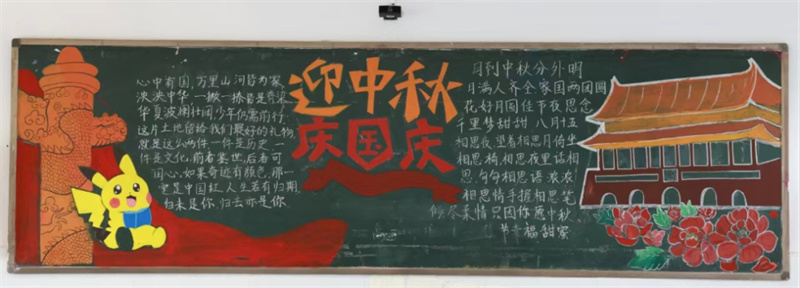 心中有国,万里山河皆为家
泱泱中华,一撇一捺皆是脊梁
华夏波澜壮阔,少年仍需前行
这片土地留给我们最好的礼物
就是这么两件,一件是历史,一
件是文化,前者鉴世,后者可
心,如果奇迹有颜色,那一
定是中国红,人生若有归期,
归来是你,归去亦是你
迎中秋
庆国庆
月到中秋分外明
月满人齐全家国两团圆
花好月圆佳节夜思念
千里梦甜甜 八月十五
相思夜,望着相思月,倚坐
相思椅,相思夜里话相
思,句句相思语,浓浓
相思情,手握相思笔
倾尽柔情,只因你愿中秋
节幸福甜蜜